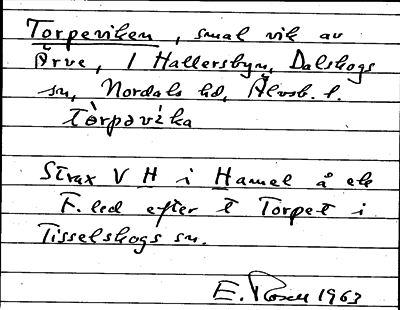 Torpeviken, smal vik av
Ärve, 1 Hallersbyn, Dalskogs
sn, Nordals hd, Älvsb. l.
tòrpəvı̀ka
Strax V H i Hamel å ek
F. led efter t Torpet i
Tisselskogs sn.
E. Rosell 1963